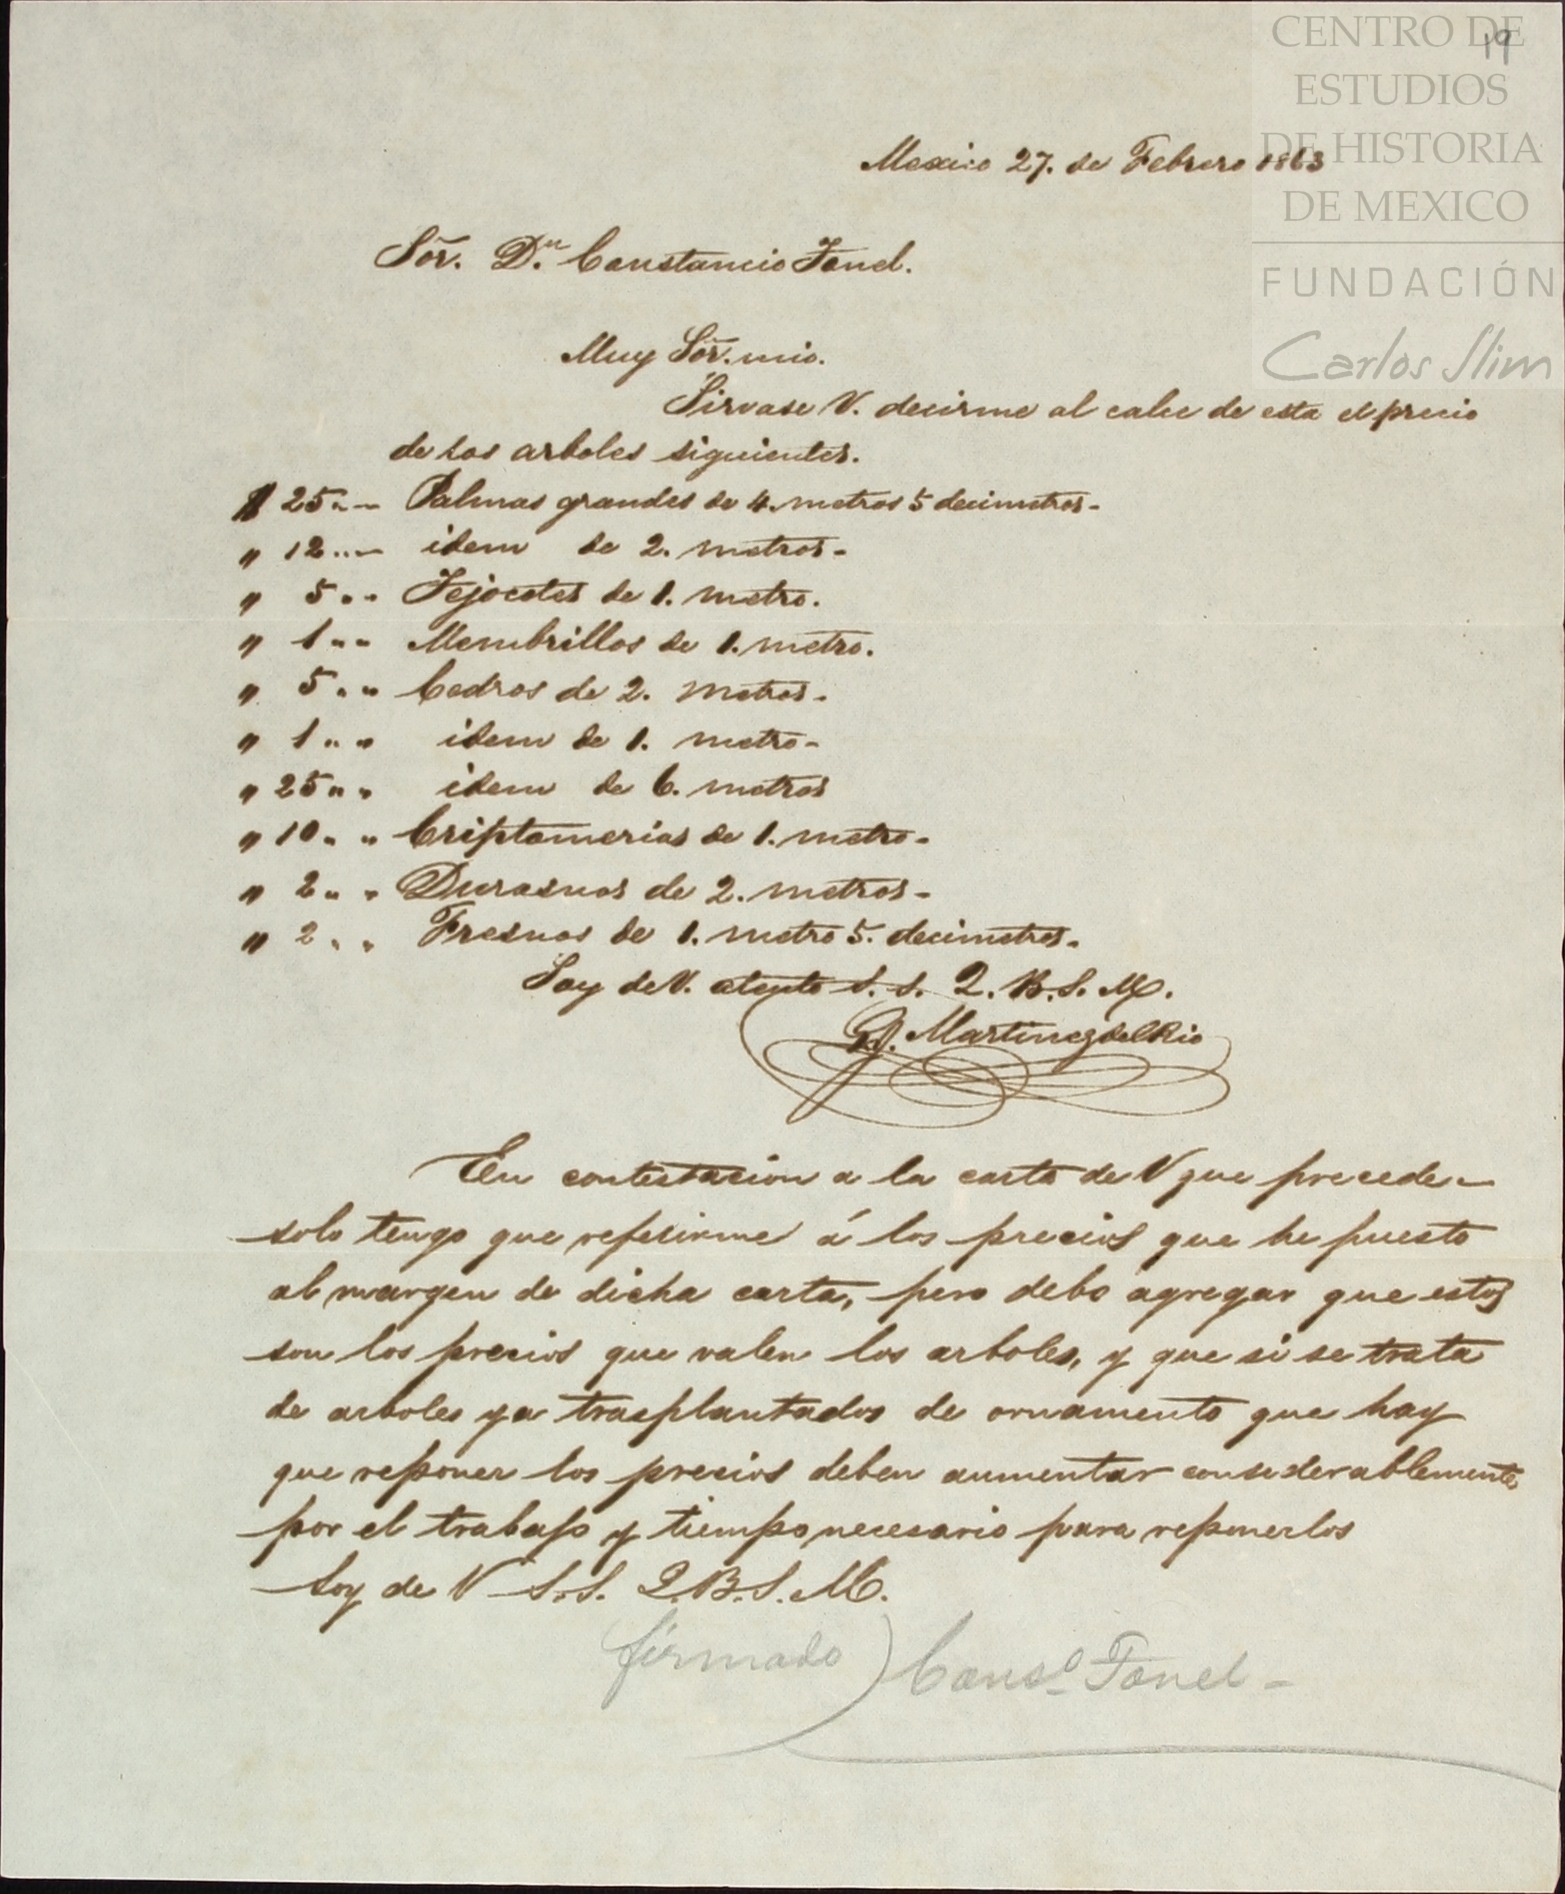 CENTRO DE
ESTUDIOS
DE HISTORIA
DE MEXICO
FUNDACIÓN
Carlos Slim
19
Mexico 27. de Febrero 1863
Sõr. D.n Constancio Tonel.
Muy Sõr. mio.
Sirvase V. decirme al calce de esta el precio
de los arboles siguientes.
$ 25 .. — Palmas grandes de 4. metros 5 decimetros -
" 12 .. — idem de 2. metros -
" 5 .. Tejocotes de 1. metro.
" 1 .. Membrillos de 1. metro.
" 5 .. Cedros de 2. metros -
" 1 .. idem de 1. metro -
" 25 .. idem de 6. metros
" 10 .. Criptomerias de 1. metro -
" 2 .. Durasnos de 2. metros -
" 2 .. Fresnos de 1. metro 5. decimetros -
Soy de V. atento S. S. Q. B. S. M.
Martinez del Rio
En contestacion a la carta de V que precede -
solo tengo que referirme á los precios que he puesto
al margen de dicha carta, pero debo agregar que estos
son los precios que valen los arboles, y que si se trata
de arboles ya trasplantados de ornamento que hay
que reponer los precios deben aumentar considerablemente
por el trabajo y tiempo necesario para reponerlos
Soy de V S. S. Q. B. S. M.
firmado) Cons.o Tonel -